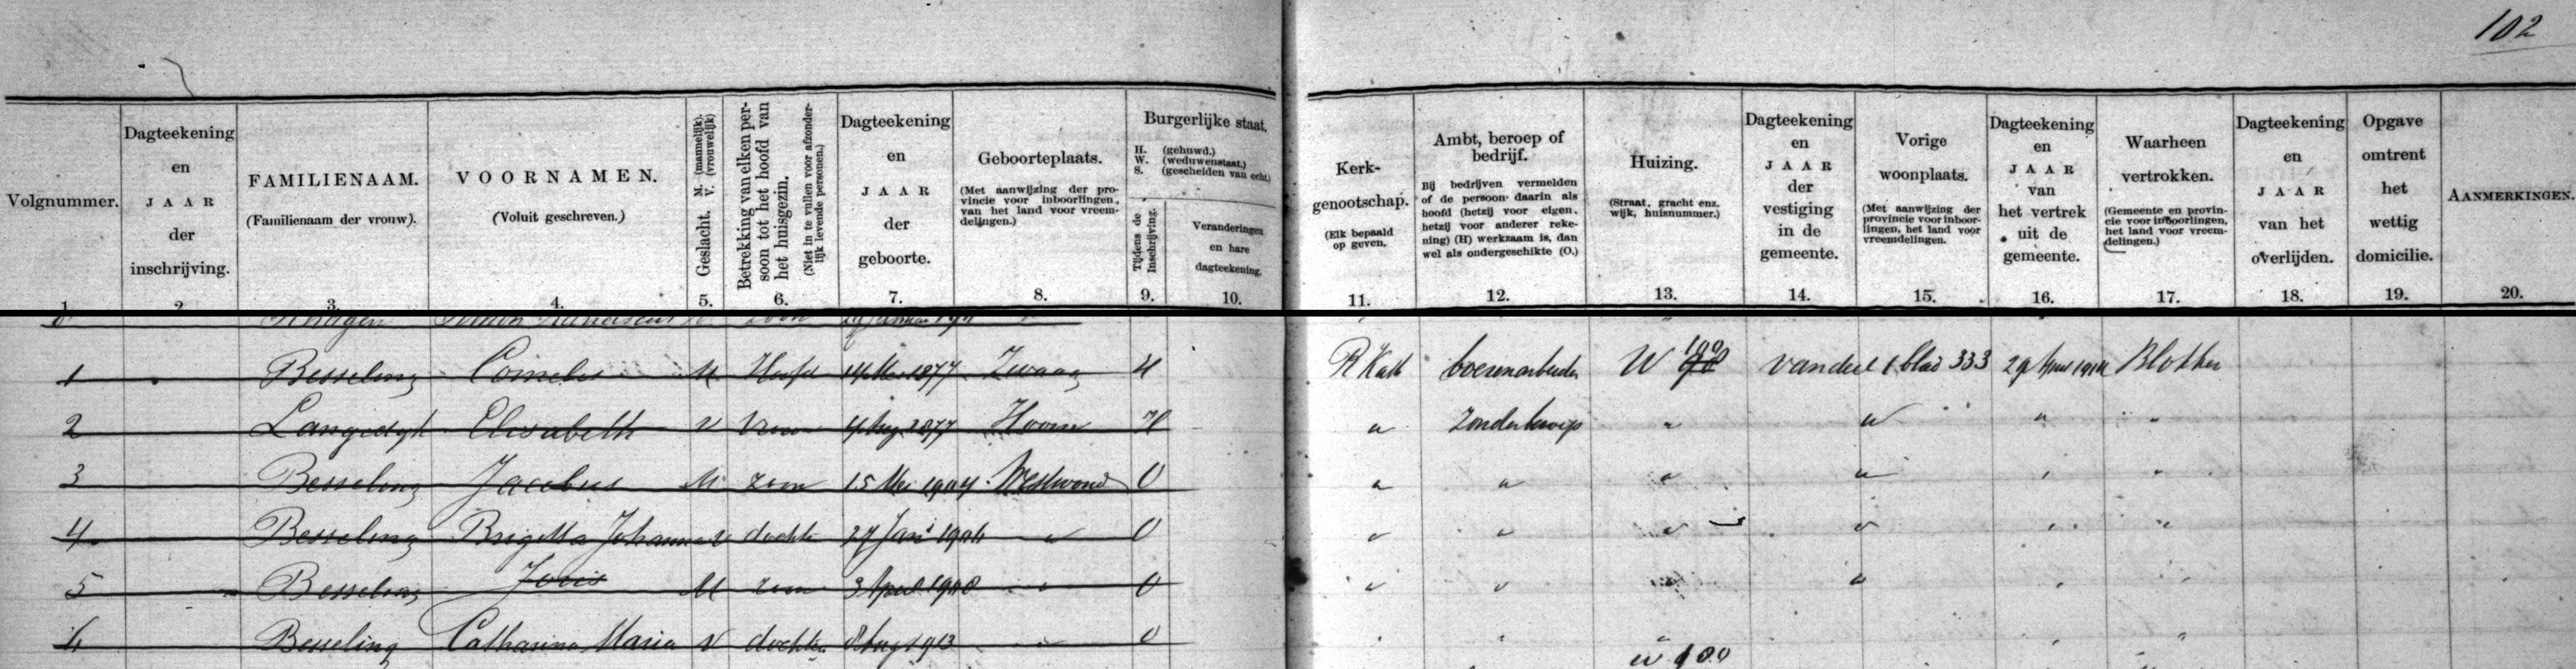 102
Volgnummer.
1.
Dagteekening
en
JAAR
der
inschrijving.
2
FAMILIENAAM.
(Familienaam der vrouw).
3.
VOORNAMEN.
(Voluit geschreven.)
4.
Geslacht. M. (mannelijk). V. (vrouwelijk)
5.
Betrekking van elken per-
soon tot het hoofd van
het huisgezin.
(Niet in te vullen voor afzonder-
lijk levende personen.)
6.
Dagteekening
en
JAAR
der
geboorte.
7.
Geboorteplaats.
(Met aanwijzing der pro-
vincie voor inboorlingen,
van het land voor vreem-
delingen.)
8.
Burgerlijke staat.
H. (gehuwd.)
W. (weduwenstaat.)
S. (gescheiden van echt.)
Tijdens de
Inschrijving.
9.
Veranderingen
en hare
dagteekening.
10.
Kerk-
genootschap.
(Elk bepaald
op geven.
11.
Ambt, beroep of
bedrijf.
Bij bedrijven vermelden
of de persoon daarin als
hoofd (hetzij voor eigen,
hetzij voor anderer reke-
ning) (H) werkzaam is, dan
wel als ondergeschikte (O.)
12.
Huizing.
(Straat, gracht enz.
wijk, huisnummer.)
13.
Dagteekening
en
JAAR
der
vestiging
in de
gemeente.
14.
Vorige
woonplaats.
(Met aanwijzing der
provincie voor inboor-
lingen, het land voor
vreemdelingen.
15.
Dagteekening
en
JAAR
van
het vertrek
uit de
gemeente.
16.
Waarheen
vertrokken.
(Gemeente en provin-
cie voor inboorlingen,
het land voor vreem-
delingen.)
17.
Dagteekening
en
JAAR
van het
overlijden.
18.
Opgave
omtrent
het
wettig
domicilie.
19.
AANMERKINGEN.
20.
1 Besseling Cornelis M Hoofd 14 Mei 1877 Zwaag H R Kath boerenarbeider W 100 van deel 1 blad 333 29 April 1914 Blokker
2 Langedijk Elisabeth V Vrouw 4 Aug 1877 Hoorn H " Zonder beroep " " " "
3 Besseling Jacobus M zoon 15 Mei 1904 Westwoud O " " " " " "
4 Besseling Brigitta Johanna V dochter 27 Jan 1906 " O " " " " " "
5 Besseling Joris M zoon 3 April 1908 " O " " " " " "
6 Besseling Catharina Maria V dochter 8 Aug 1913 " O " " " " "
W 100